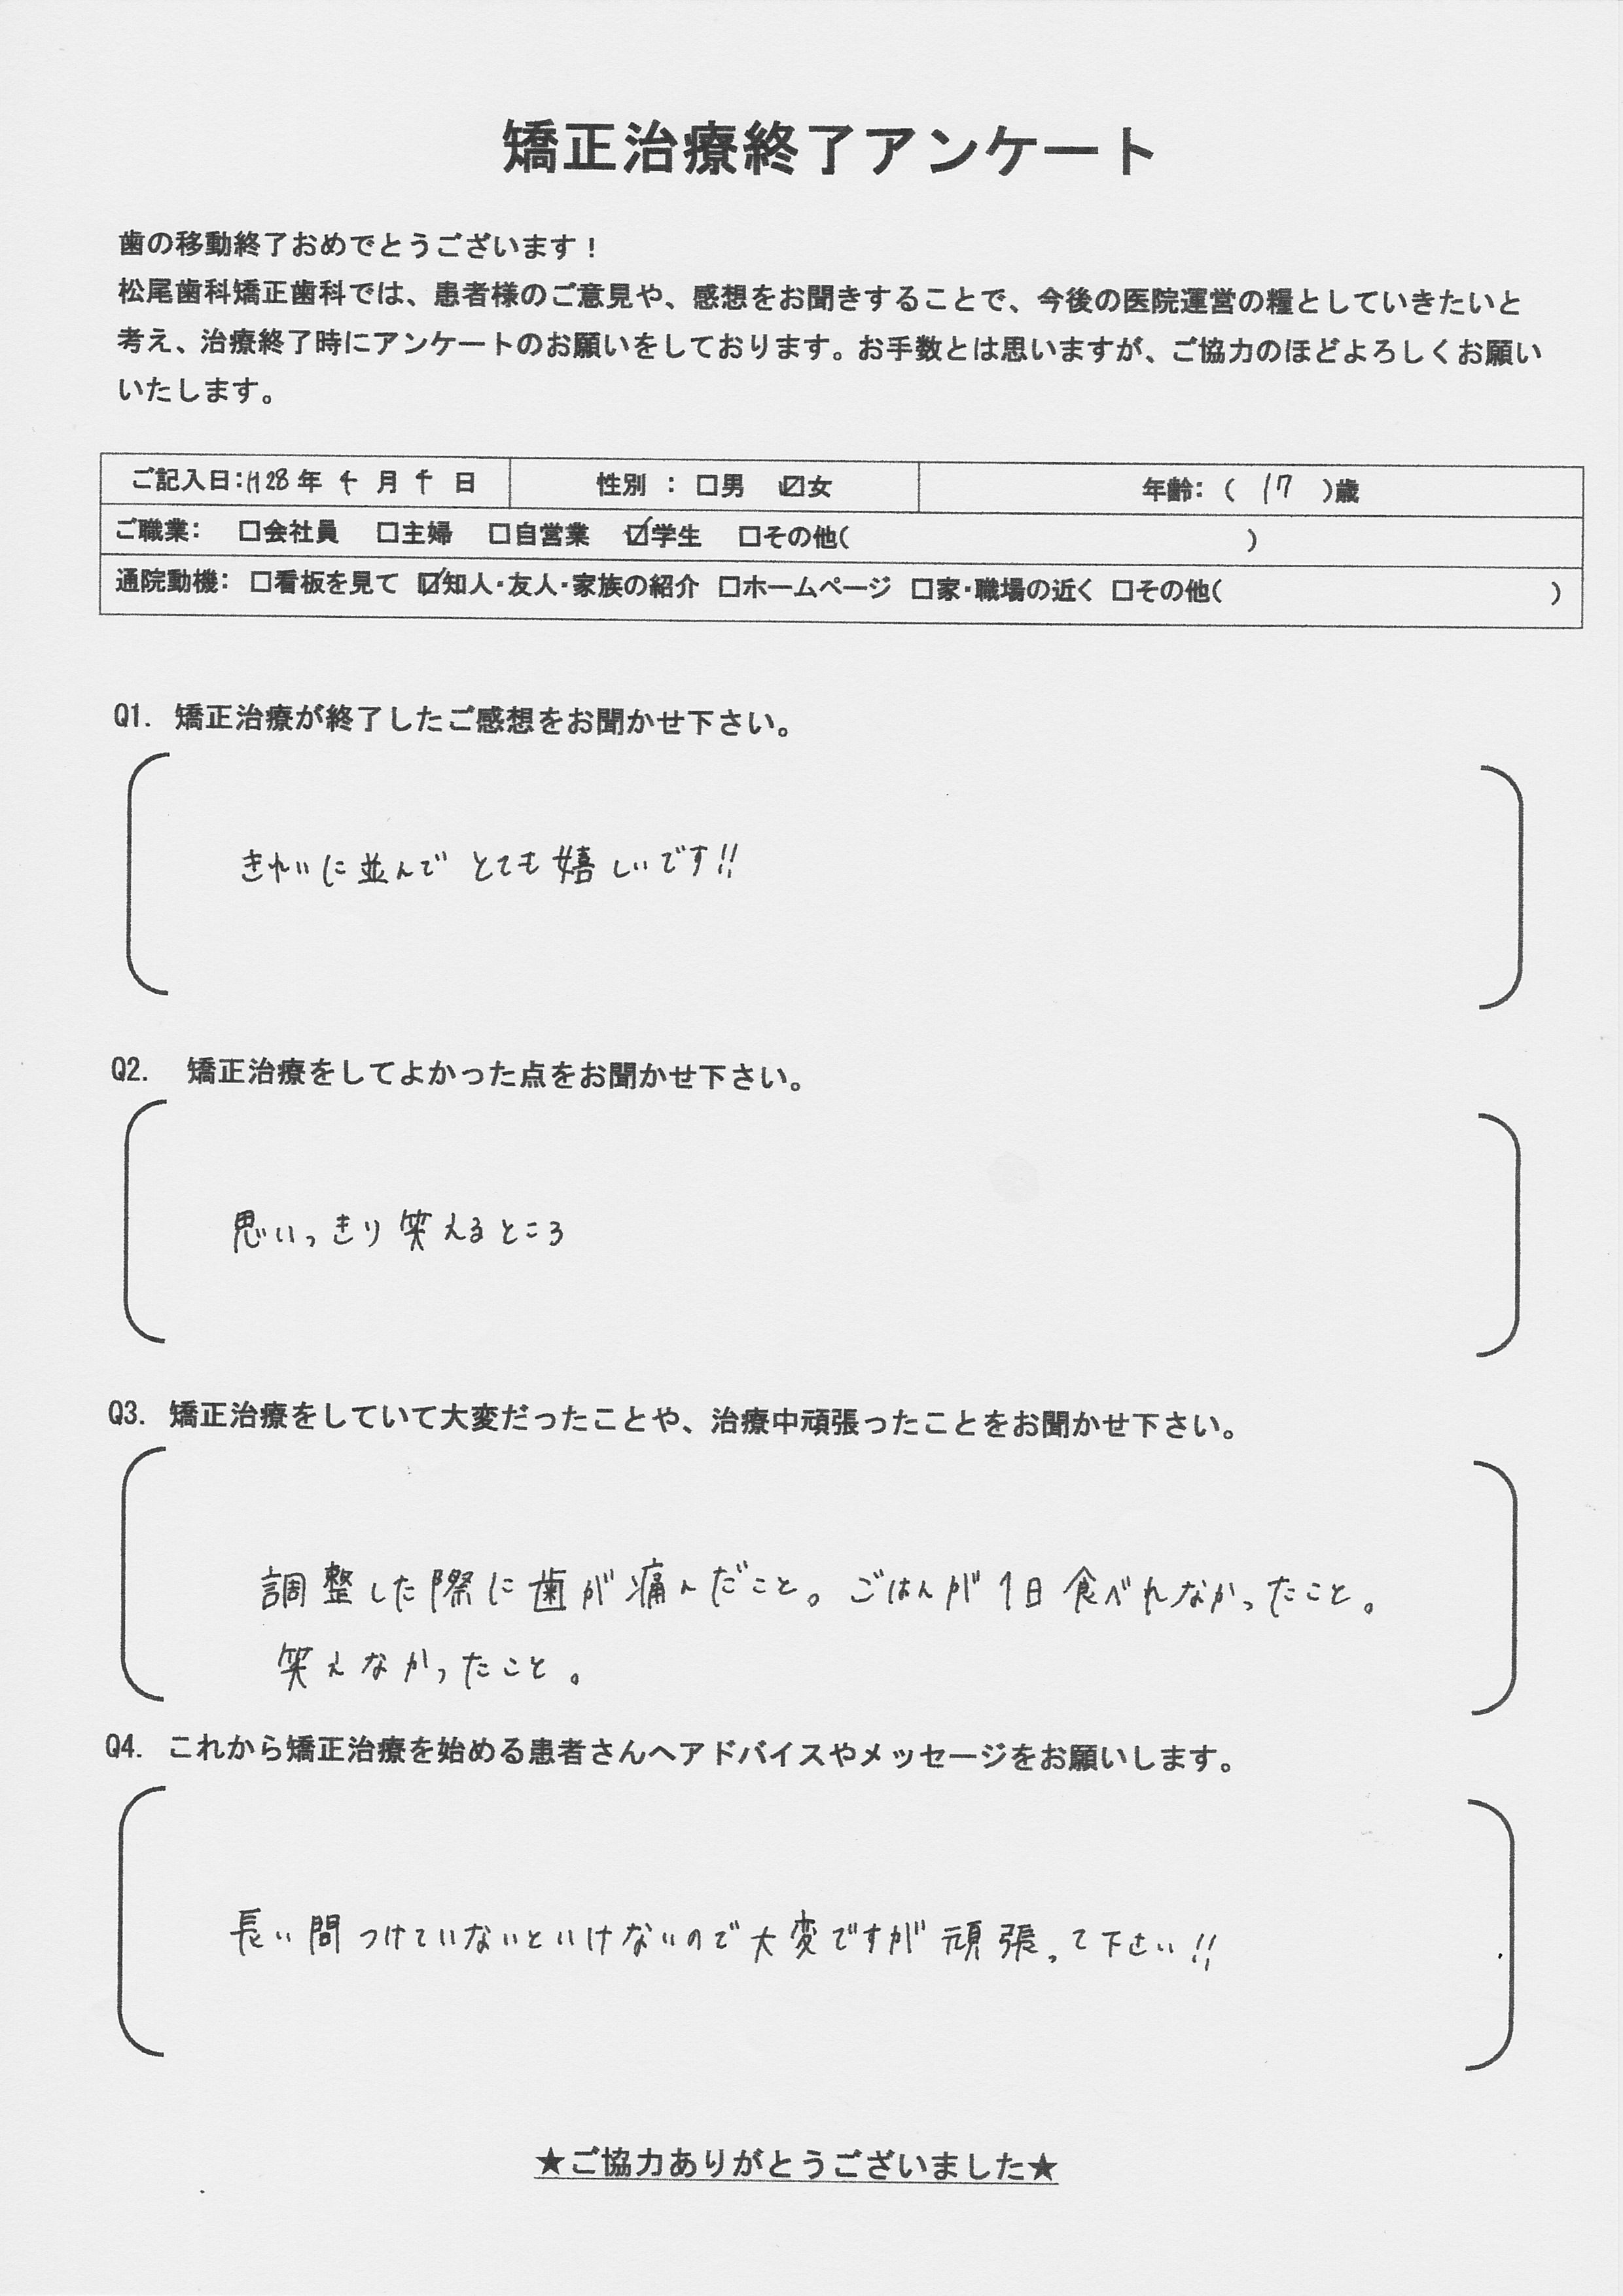 矯正治療終了アンケート
歯の移動終了おめでとうございます！
松尾歯科矯正歯科では、患者様のご意見や、感想をお聞きすることで、今後の医院運営の糧としていきたいと
考え、治療終了時にアンケートのお願いをしております。お手数とは思いますが、ご協力のほどよろしくお願い
いたします。
ご記入日：H28年 4 月 日 性別 ： □男 ☑女 年齢：（ 17 ）歳
ご職業： □会社員 □主婦 □自営業 ☑学生 □その他（ ）
通院動機： □看板を見て ☑知人・友人・家族の紹介 □ホームページ □家・職場の近く □その他（ ）
Q1. 矯正治療が終了したご感想をお聞かせ下さい。
きれいに並んでとても嬉しいです!!
Q2. 矯正治療をしてよかった点をお聞かせ下さい。
思いっきり笑えるところ
Q3. 矯正治療をしていて大変だったことや、治療中頑張ったことをお聞かせ下さい。
調整した際に歯が痛んだこと。ごはんが1日食べれなかったこと。
笑えなかったこと。
Q4. これから矯正治療を始める患者さんへアドバイスやメッセージをお願いします。
長い間つけていないといけないので大変ですが頑張って下さい!!
★ご協力ありがとうございました★